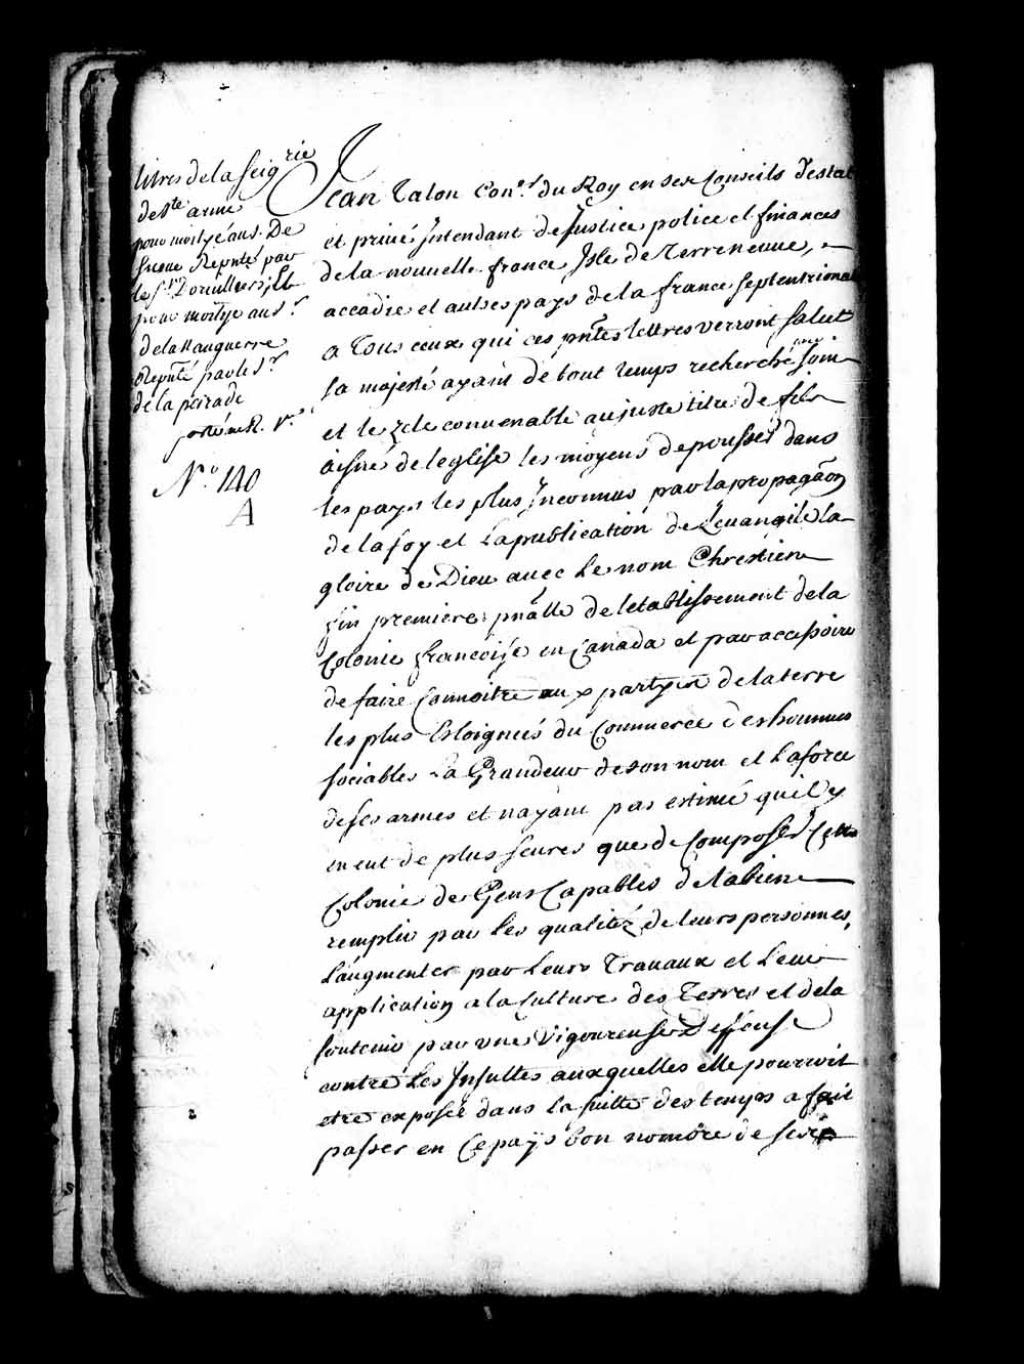 titres de la seig.rie
de Ste anne
pour moityé aus. De
Suene Reputé par
le Sr. Dorvilliers, Et
pour moitye au Sr.
de la Nauguerre
Reputé par le Sr.
de la peirade
porté au R. Vo.
No. 140
A
Jean Talon Con.er du Roy en ses Conseils d'estat
et privé Intendant de Justice police et finances
de la nouvelle france Isle de Terreneuve,
accadie et autres pays de la france septentrionale
a Tous ceux qui ces pntes lettres verront Salut
sa majesté ayant de tout temps recherché avec soin
et le zele convenable au juste titre de fils
aisné de leglise les moyens de pousser dans
les pays les plus Inconnus par la propagaōn
de la foy et La publication de Levangile la
gloire de Dieu avec le nom Chrestien
fin premiere pnālle de letablissement de la
Colonie francoise en Canada et par accessoire
de faire Connoitre aux partyes de la terre
les plus Esloignées du Commerce des hommes
sociables La Grandeur de son nom et La force
de ses armes et nayant pas estimé quil y
en eut de plus seures que de Composer Cette
Colonie de Gens Capables de la bien
remplir par les qualitéz de leurs personnes,
L'augmenter par Leurs Travaux et Leur
application a la Culture des Terres et de la
soutenir par une Vigoureuse Deffense
contre Les Insultes auxquelles elle pourroit
etre exposée dans la suitte des temps a fait
passer en Ce païs bon nombre de ses